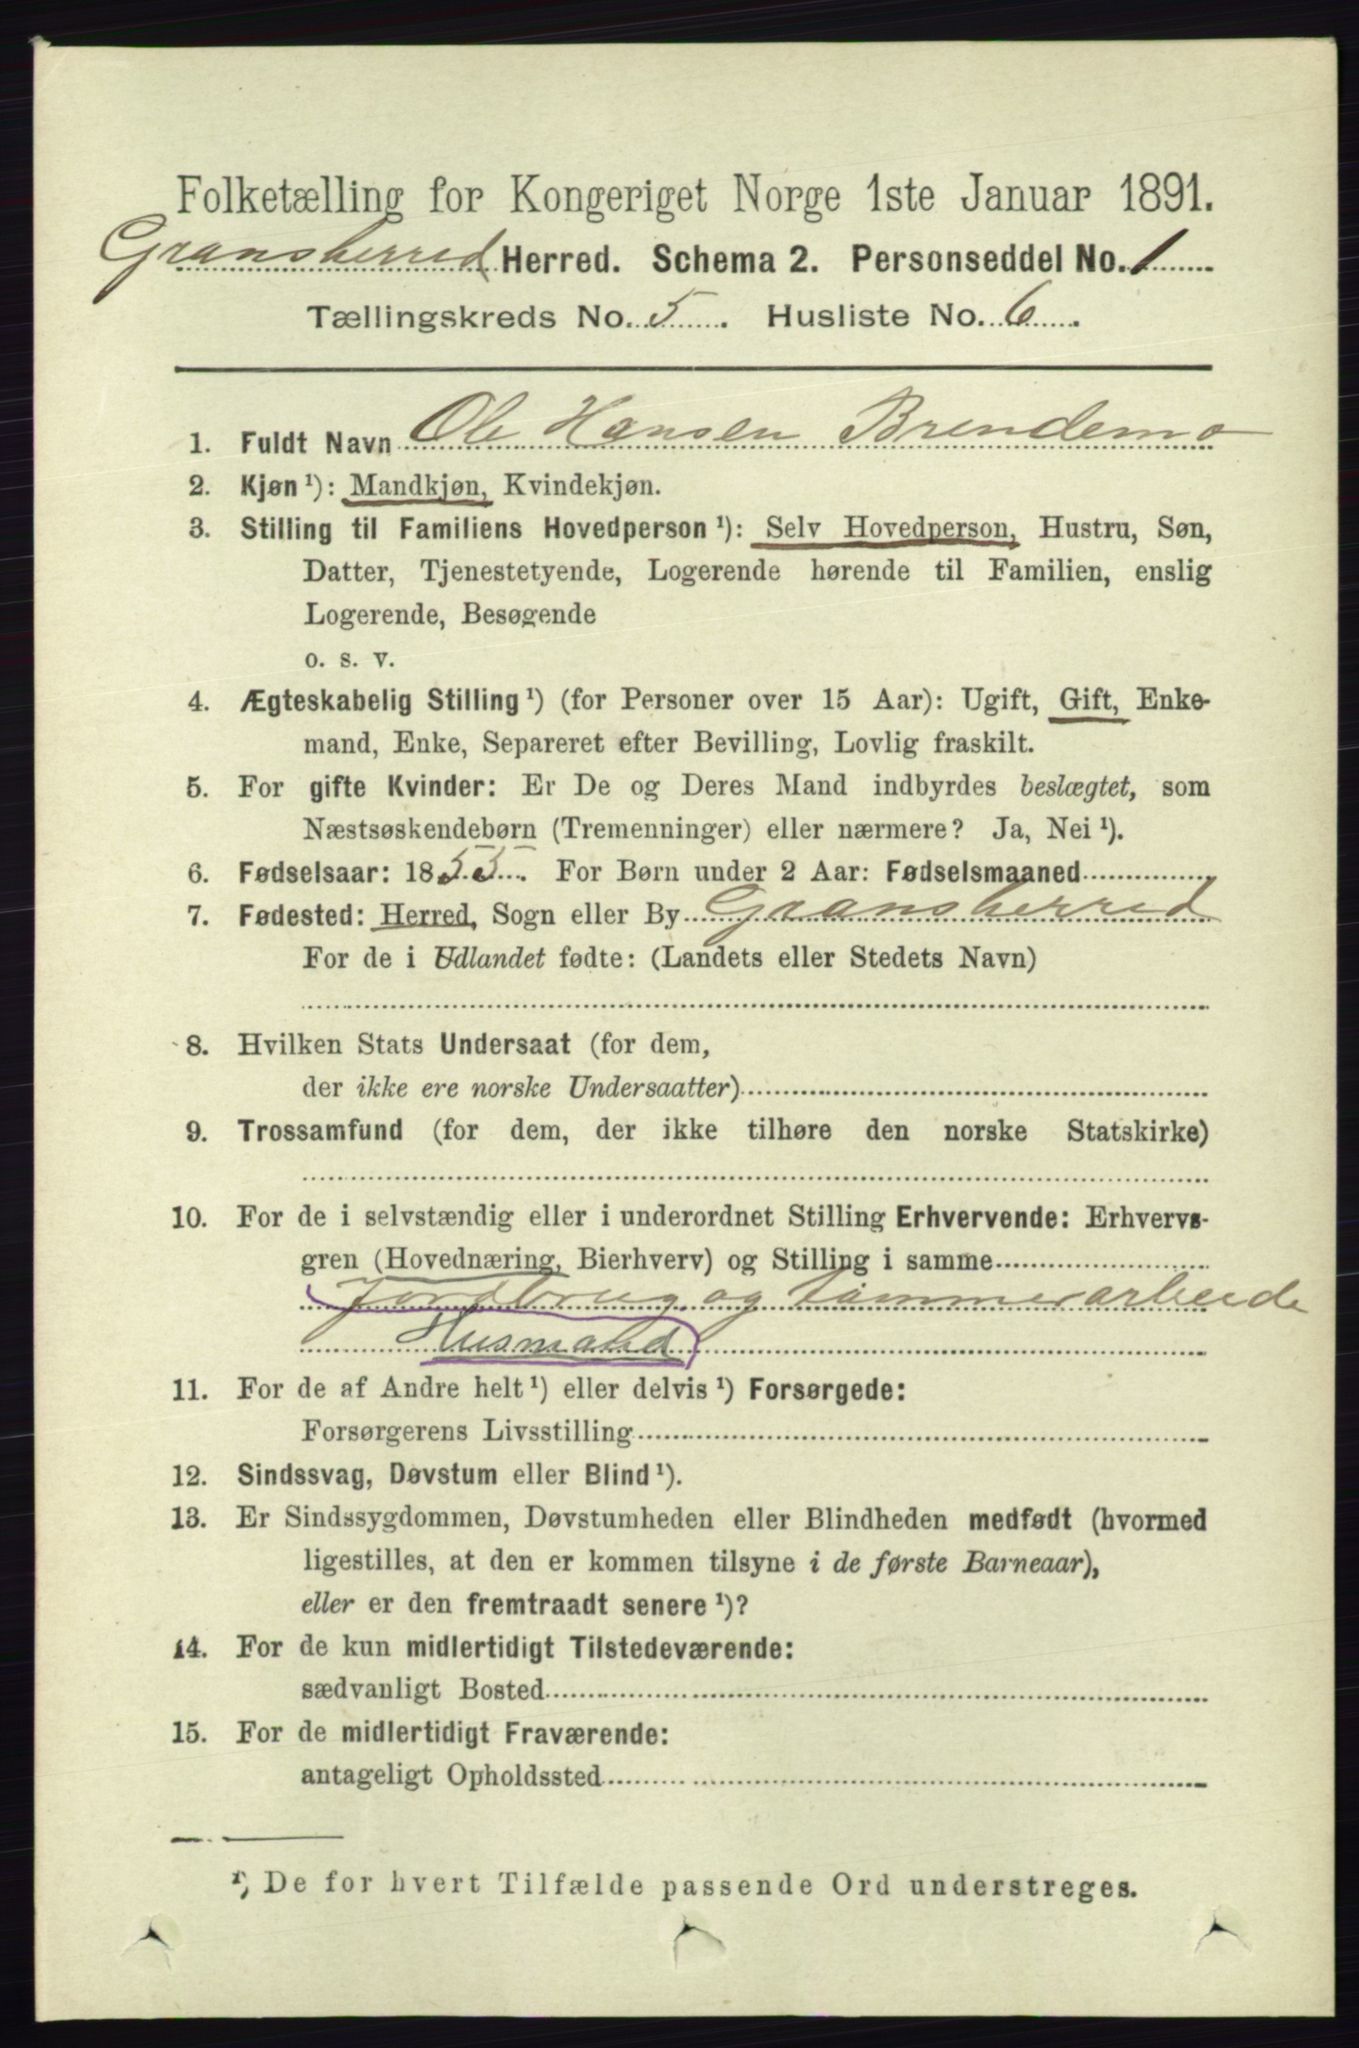 Folketælling for Kongeriget Norge 1ste Januar 1891.
Gransherred Herred. Schema 2. Personseddel No. 1
Tællingskreds No. 5. Husliste No. 6.
1. Fuldt Navn Ole Hansen Brendemo
2. Kjøn ¹): Mandkjøn, Kvindekjøn.
3. Stilling til Familiens Hovedperson ¹): Selv Hovedperson, Hustru, Søn,
Datter, Tjenestetyende, Logerende hørende til Familien, enslig
Logerende, Besøgende
o. s. v.
4. Ægteskabelig Stilling ¹) (for Personer over 15 Aar): Ugift, Gift, Enke-
mand, Enke, Separeret efter Bevilling, Lovlig fraskilt.
5. For gifte Kvinder: Er De og Deres Mand indbyrdes beslægtet, som
Næstsøskendebørn (Tremenninger) eller nærmere? Ja, Nei ¹).
6. Fødselsaar: 1855. For Børn under 2 Aar: Fødselsmaaned
7. Fødested: Herred, Sogn eller By Gransherred
For de i Udlandet fødte: (Landets eller Stedets Navn)
8. Hvilken Stats Undersaat (for dem,
der ikke ere norske Undersaatter)
9. Trossamfund (for dem, der ikke tilhøre den norske Statskirke)
10. For de i selvstændig eller i underordnet Stilling Erhvervende: Erhvervs-
gren (Hovednæring, Bierhverv) og Stilling i samme
Jordbrug og tømmerarbeide
Husmand
11. For de af Andre helt ¹) eller delvis ¹) Forsørgede:
Forsørgerens Livsstilling
12. Sindssvag, Døvstum eller Blind ¹).
13. Er Sindssygdommen, Døvstumheden eller Blindheden medfødt (hvormed
ligestilles, at den er kommen tilsyne i de første Barneaar),
eller er den fremtraadt senere ¹)?
14. For de kun midlertidigt Tilstedeværende:
sædvanligt Bosted
15. For de midlertidigt Fraværende:
antageligt Opholdssted
¹) De for hvert Tilfælde passende Ord understreges.